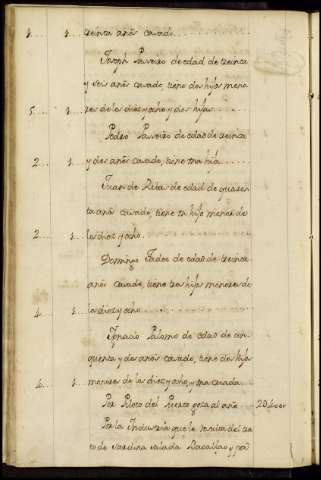 1 1 treinta años casado
Joseph Piñeiro de edad de treinta
y seis años casado, tiene dos hijos meno
5 1 res de los diez y ocho y dos hijas
Pedro Piñeiro de edad de treinta
2 1 y dos años casado, tiene una hija
Juan de Reta de edad de quaren
ta años casado, tiene un hijo menor de
2 1 los diez y ocho
Domingo de edad de treinta
años casado, tiene tres hijos menores de
4 1 los diez y ocho
Ignacio Palomo de edad de cin
quenta y dos años casado, tiene dos hijos
4 1 menores de los diez y ocho, y una criada
Por Piloto del Puerto goza al año
Por la Industria que le resulta del tra
to de sardina salada Bacallao y